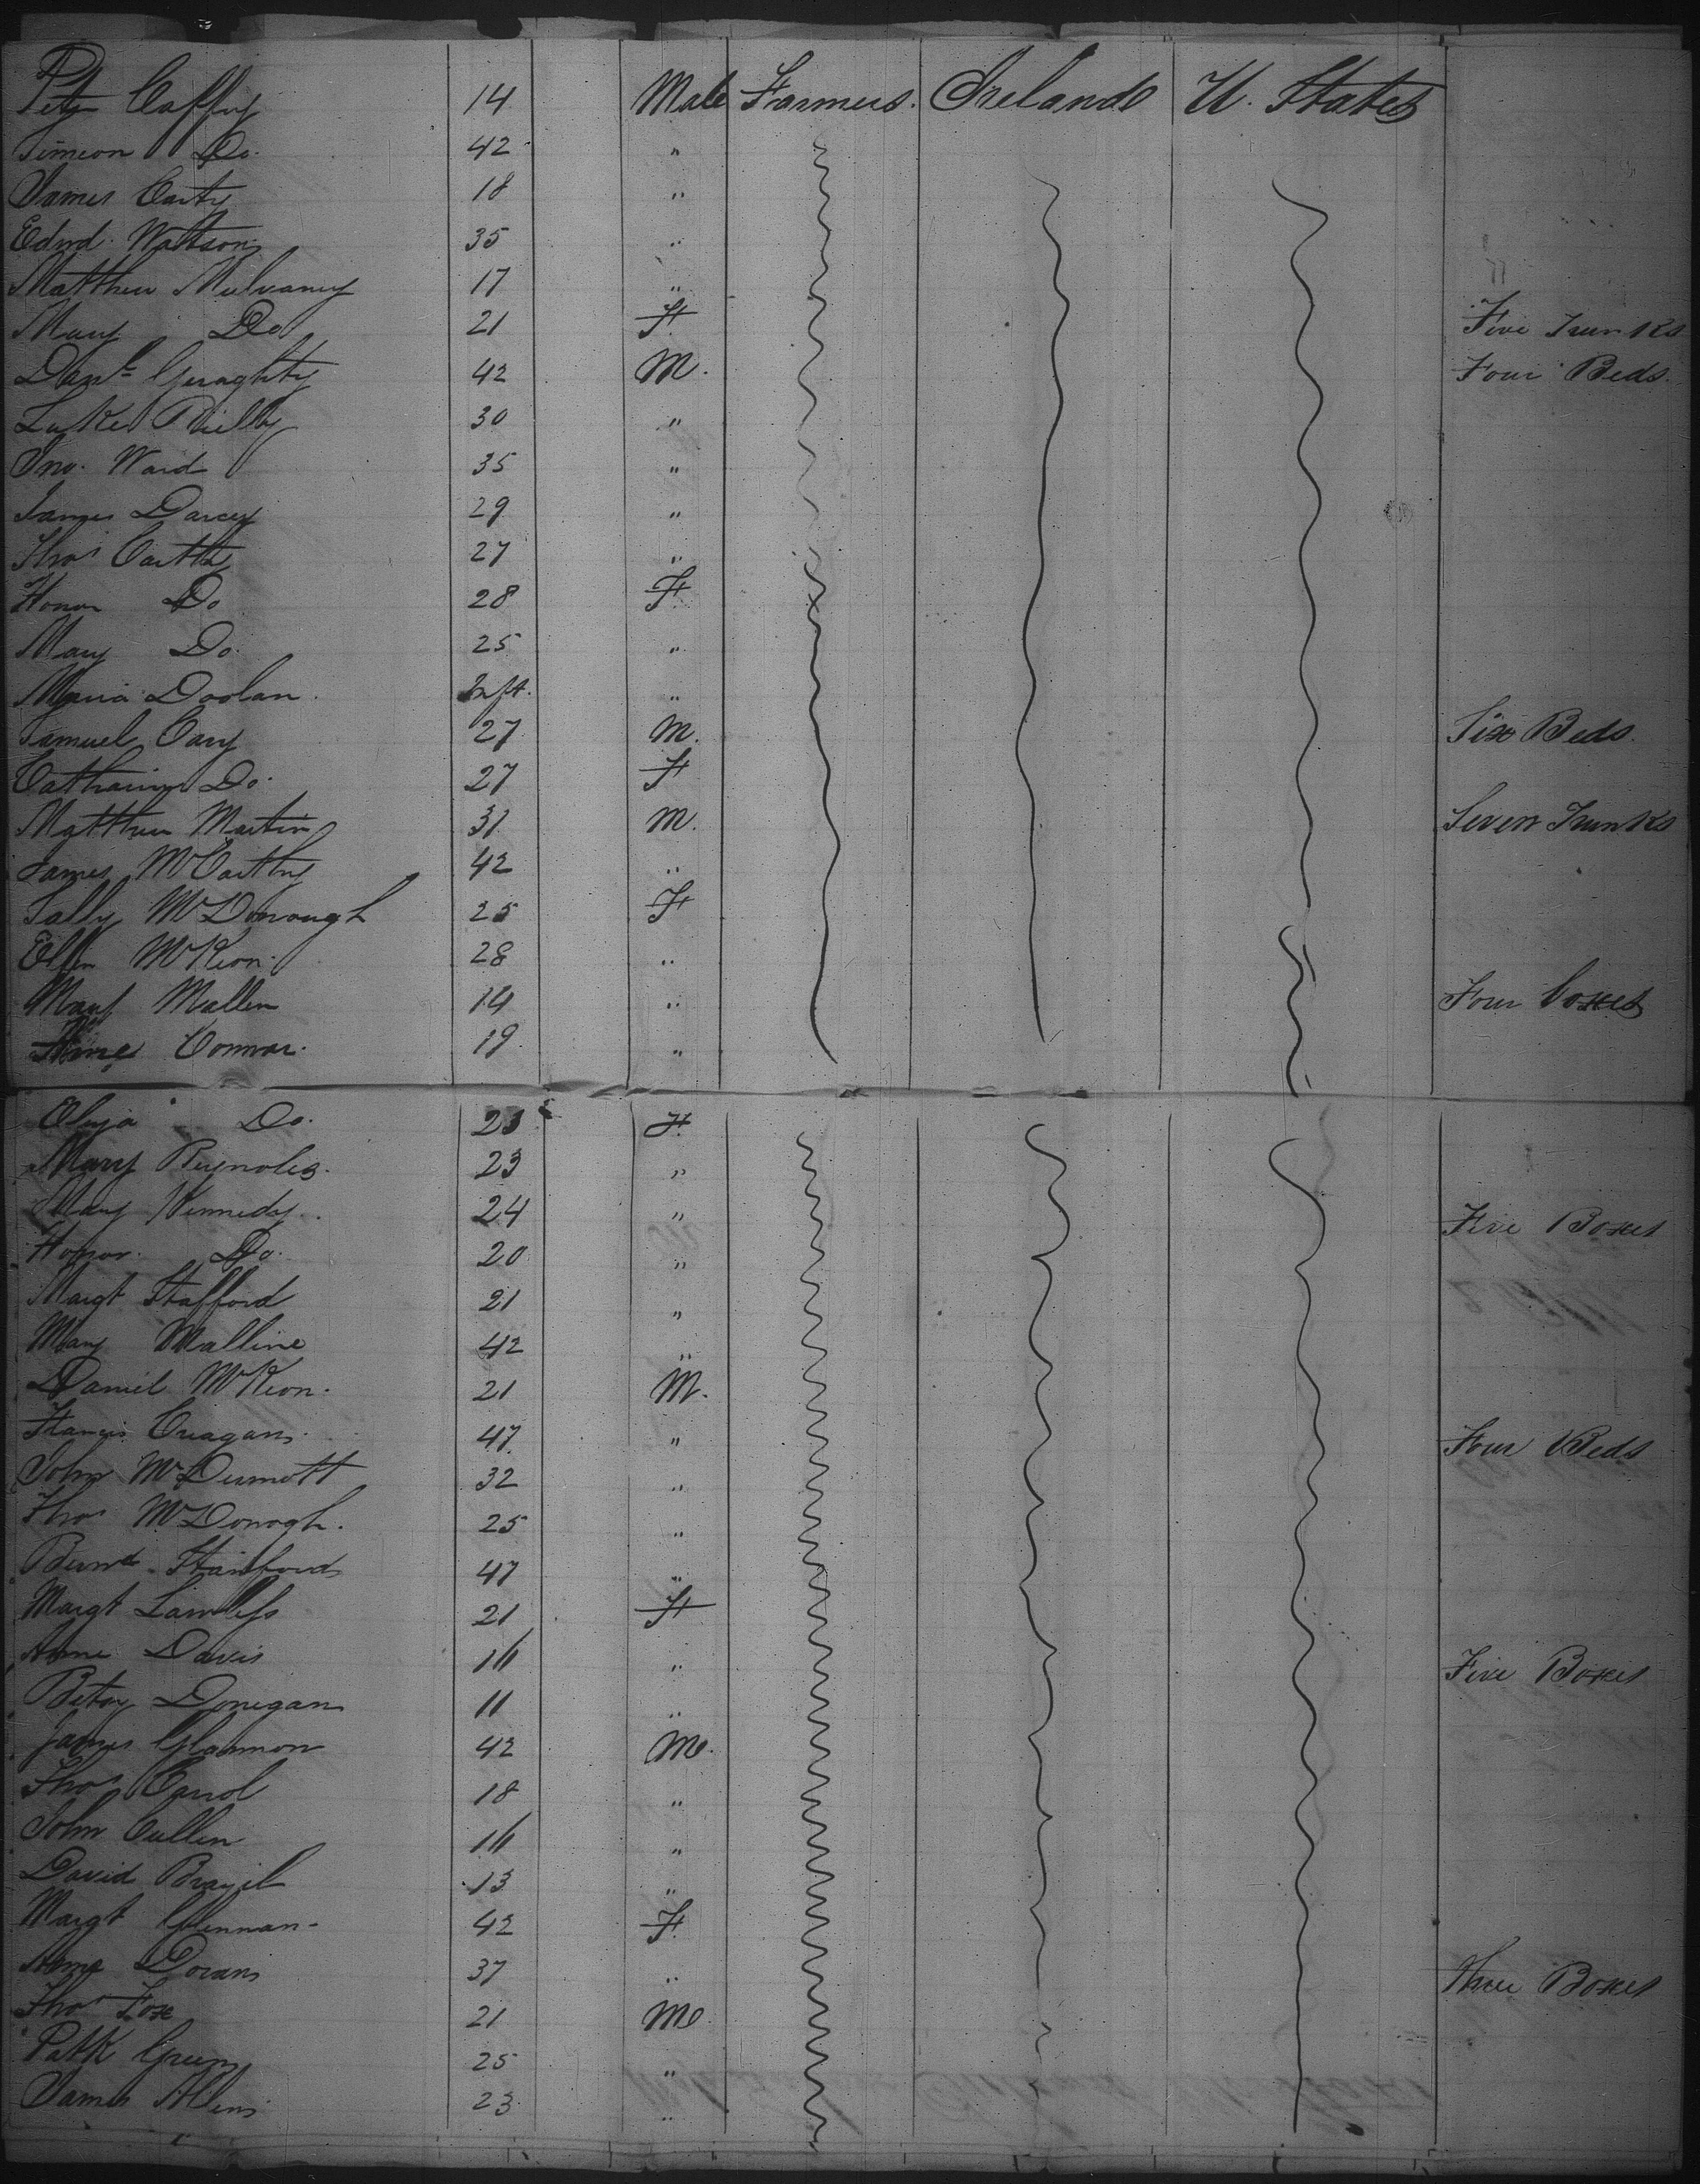 Peter Caffry 14 Male Farmers. Ireland U. States
Simeon Do. 42 "
James Carty 18 "
Edwd. Wattson 35 "
Matthew Mulvaney 17 "
Mary Do 21 F. Five Trunks
Danl. Geraghty 42 M. Four Beds.
Luke Rielly 30 "
Jno. Ward 35 "
James Darcey 29 "
Thos Carthy 27 "
Honor Do 28 F.
Mary Do. 25 "
Maria Doolan. Inft. "
Samuel Cary 27 M. Six Beds.
Catharine Do. 27 F
Matthew Martin 31 M. Seven Trunks
James McCarthy 42 "
Sally McDonough 25 F
Ellen McKeon. 28 "
Mary Mullen 14 " Four boxes
Connor. 19 "
Do. 23 F.
Mary Reynolds. 23 "
Mary Kennedy. 24 " Five Boxes
Honor. Do. 20 "
Margt Stafford 21 "
Mary Malline 42 "
Daniel McKeon. 21 M.
Francis Creagan. 47 " Four Beds
John McDermott 32 "
Thos McDonogh. 25 "
Bernd. Stanford 47 "
Margt Lawless 21 F
Anne Davis 16 " Five Boxes
Betsy Donegan 11 "
James Glannon 42 M.
Thos Carrol 18 "
John Cullen 16 "
David Brazil 13 "
Margt Glennan- 42 F.
Anne Doran 37 " Three Boxes
Thos Fox 21 M.
Patk Green 25 "
James Allen 23 "